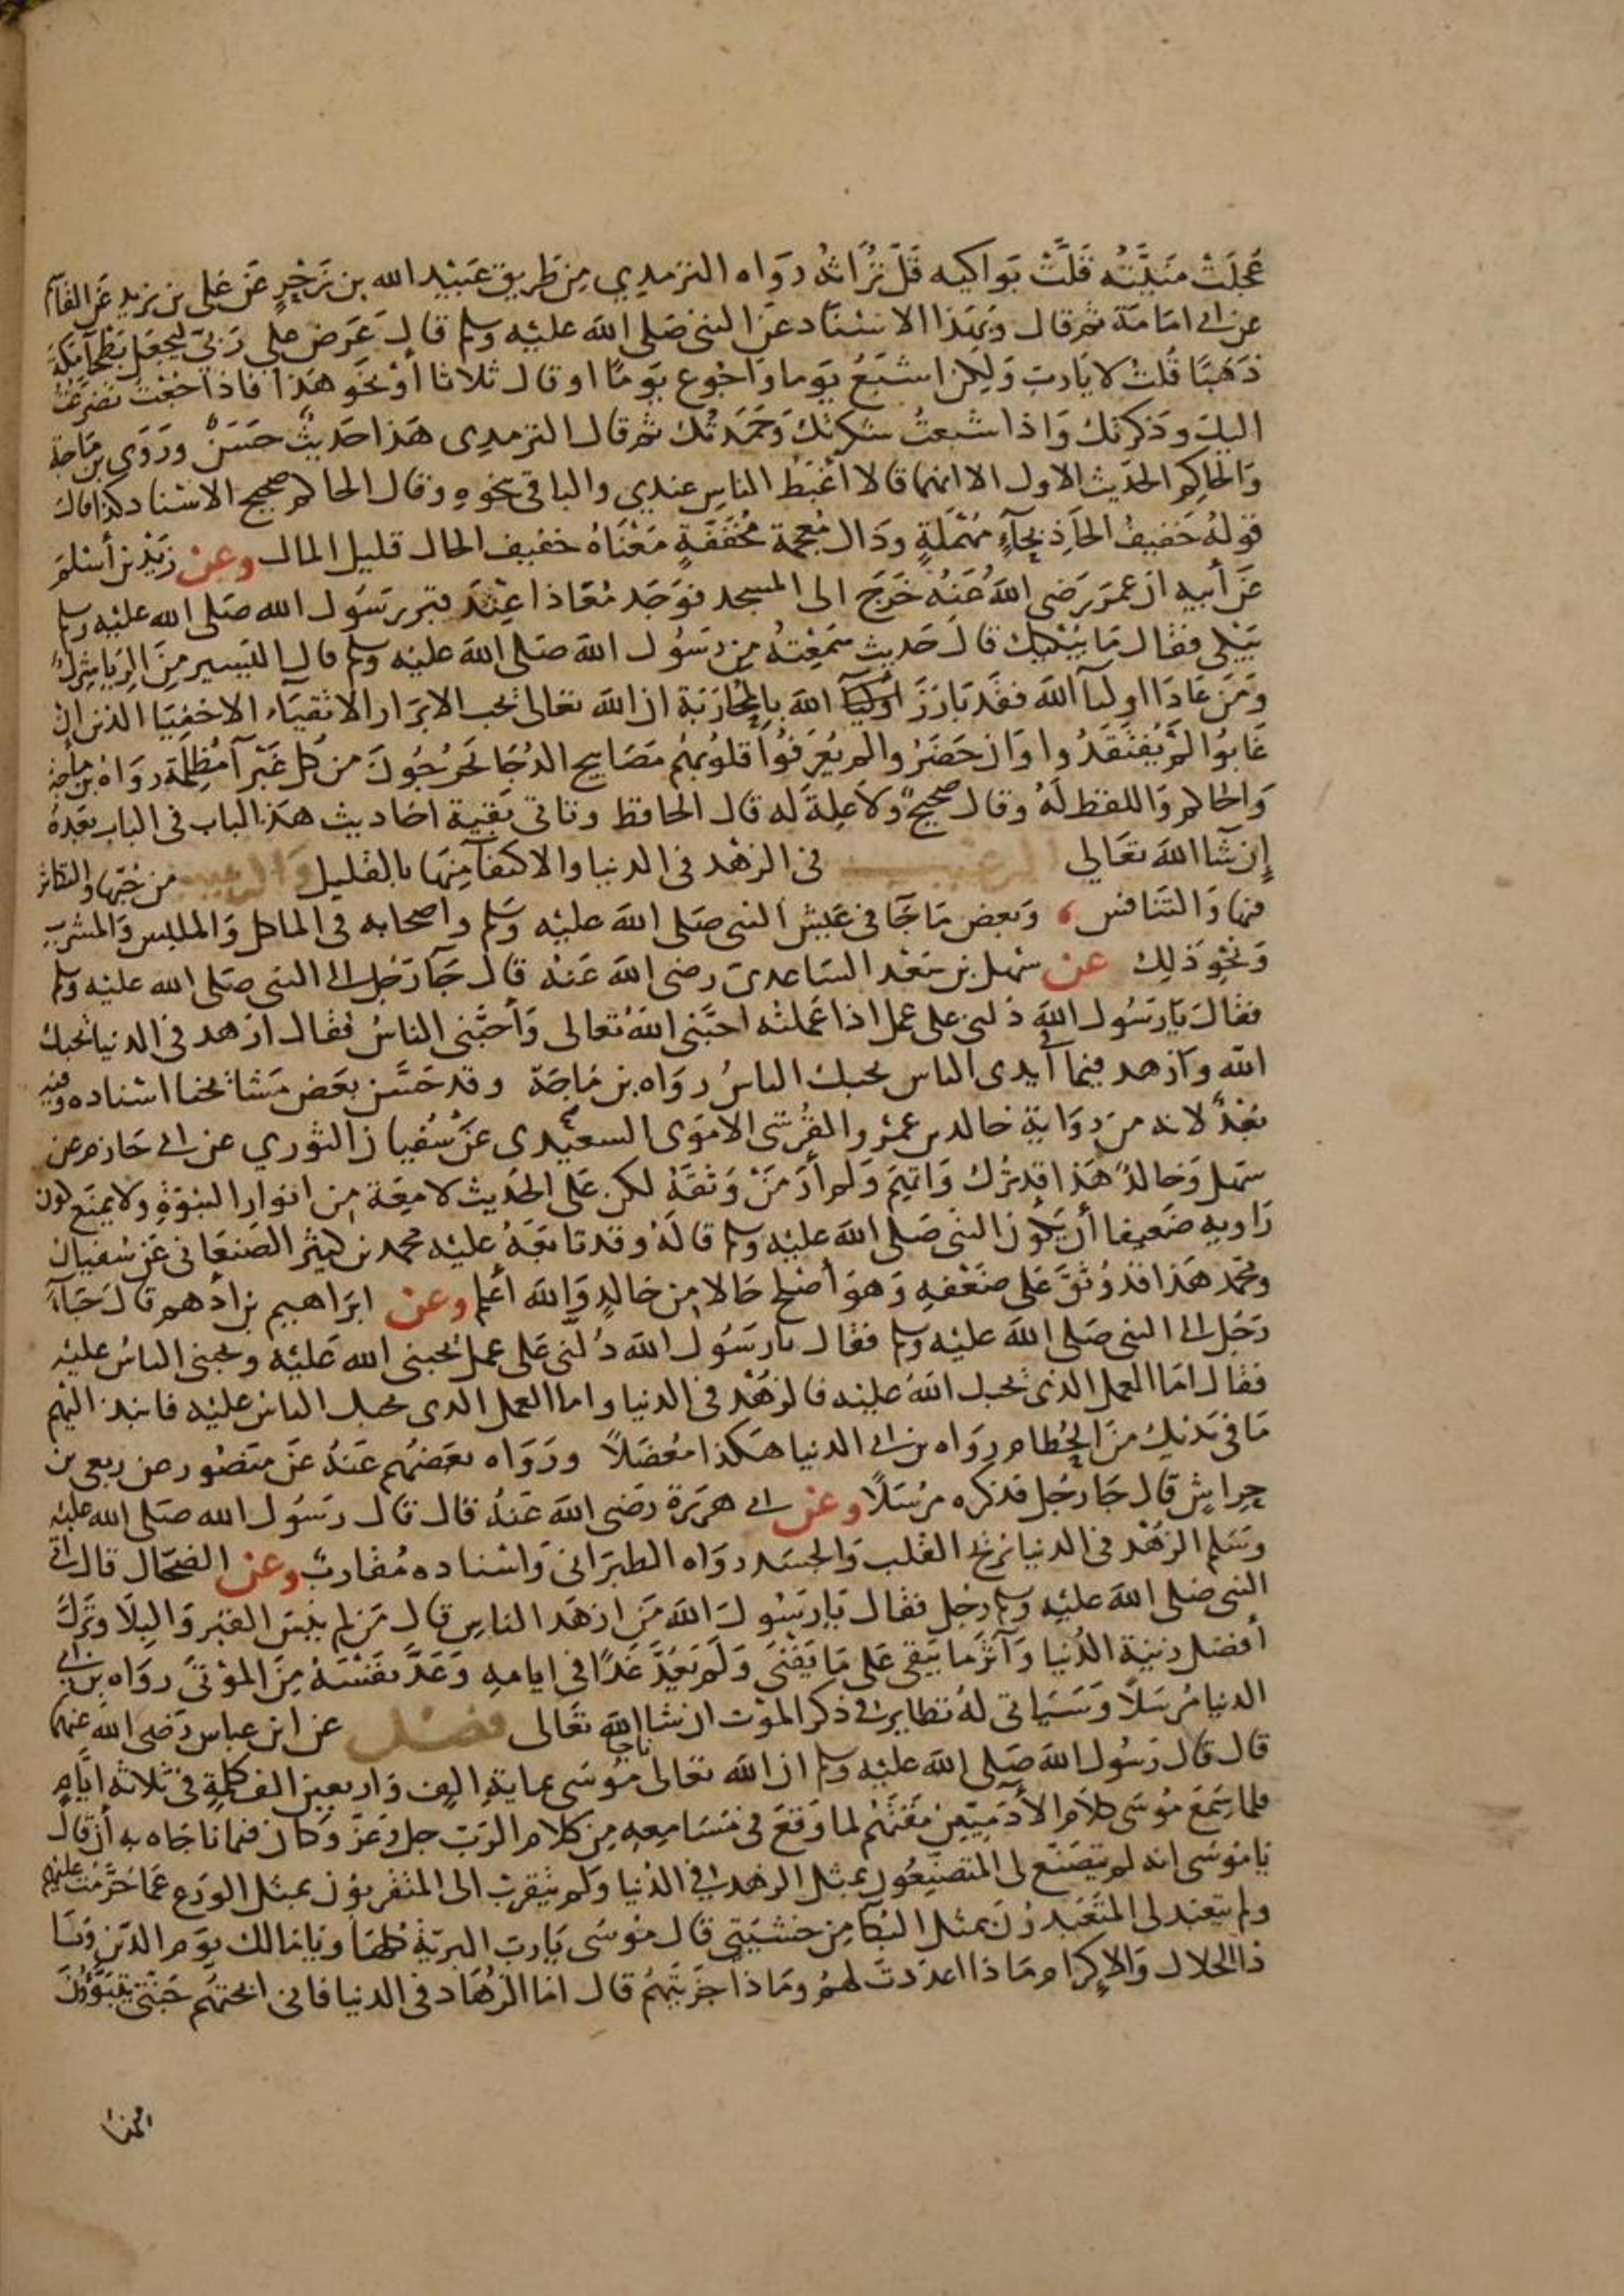 عُجِلَتْ مَنِيَّتُه قَلَّتْ بَواكيه قَلَّ تُرَاثُه رَوَاه الترمدي مِن طَريق عَبَيْد الله بن زَحْرٍ عَن عَلى بن يزيد عَن القاسم
عن ابى امَامَة ثم قال وَبهَذا الاسْنَاد عَن النبى صَلى الله عليْه وسلم قال عَرَض على رَبى لِيجعَل بَطْحآ مَكة
ذَهَبًا قُلتُ لا يَارب وَلكِن اشبَعُ يَوما وَاجُوع يَومًا او قال ثلاثا أوْ نحَو هَذا فاذا جُعْت تضرعْتُ
اليك وَذكرتك وَاذا شبعتُ شكرتك وَحَمَدتك ثم قال الترمدى هَذا حَديثٌ حسَنٌ ورَوَى بن مَاجة
وَالحاكِم الحَديث الاول الا انهما قالا أغْبَط الناسِ عندي والباقى بنحوه وقال الحاكم صحيح الاسْناد كذا قال
قولهُ خَفيفُ الحَاذ بحآءٍ مهْمَلةٍ وذال مُعجَمة مُخَففَةٍ مَعْنَاهُ خفيف الحال قليل المال وعن زَيْد بن أسْلمَ
عَن أبيه ان عمَرَ رَضى اللهُ عَنهُ خَرَجَ الى المسجد فوَجَد مُعَاذا عِنْدَ قبر رسَول الله صَلى الله عليْه وسلم
يَبْكى فقال مَا يبْكيك قال حَديث سَمَعْتهُ مِن رَسُول الله صَلى الله عليْه وسلم قال اليَسير مِنَ الرِيَا شِركٌ
وَمَن عَادَا اوليآ الله فقَد بَارَزَ اوليآ الله بِالمحَارَبَة ان الله تعَالى يُحب الابرَار الاتقيَاء الاخفِيَا الذين ان
غَابُوا لَمْ يُفتَقَدُوا وَان حَضَرُ والم يُعرَفُوا قلوُبهُم مَصَابيح الدُجَا يَخرُجُونَ مِن كل غَبْرآ مُظلِمة رَوَاهُ بن مَاجة
وَالحاكم وَاللفظ لهُ وقال صحيحٌ وَلا عِلةَ له قال الحافظ وتاتى بَقية احَاديث هَذا الباب فى الباب بَعْدهُ
إن شآ الله تعَالى الترغيب فى الزهْد فى الدنيا والاكتفآ مِنهَا بالقليل وَالترهيب من حُبّهَا والتكاثر
فيها وَالتنَافس، وَبعض مَا جَآ فى عَيش النبى صَلى الله عليْه وَسَلم واصحابه فى الماكل وَالملبس وَالمشرب
وَنحَوِ ذَلِك عن سْهل بن سَعْد السَاعدى رضى الله عَنهُ قال جَآ رَجُل الى النبى صَلى الله عليْه وسلم
فقال يَا رَسُول الله دُلنى على عمل اذا عَملته احبَّنى الله تعَالى وَأحبَّنى الناسُ فقال ازهد فى الدنيا يُحبك
الله وَازهد فيما فى أيدى الناس يحبك الناسُ رَوَاه بن مَاجَة وقد حَسَّن بعَض مَشائخنا اسْناده وفيه
بُعْدٌ لانه من روَاية خالد بن عمْرو القُرشى الامَوى السعيدى عَن سُفيان الثوري عن ابى حَازم عن
سَهل وَخالدٌ هَذا قد تُرك وَاتهِم وَلم أرَ مَنْ وَثقَهُ لكن عَلى الحَديث لامعَة مِن انوار النبوَة ولا يمنَع كون
رَاويه ضَعيفا أن يَكون النبى صَلى الله عليْه وسلم قالهُ وقد تابَعَهُ عليْه محمد بن كثير الصَنعَانى عَن سُفيان
ومحمد هَذا قد وُثقَ عَلى ضَعْفهِ وَهوَ أصْلح حَالا مِن خالدٍ وَالله أعْلم وعن ابرَاهيم بن أدهم قال جَآءَ
رَجُل الى النبى صَلى الله عليْه وسلم فقال يا رسَوُل الله دُلنى عَلى عمل يُحبنى الله عَليْه ويحبنى الناسُ عليْه
فقال امَا العمل الذى يُحبك اللهُ عليْه فالزهْد فى الدنيا واما العمل الذى يحبك الناس عليْه فانبذ اليْهم
مَا فى يَديك مِنَ الحُطام رَوَاه بن ابى الدنيا هَكذا مُعْضَلاً ورَوَاه بعَضهُم عَنهُ عَن منصُور عن ربعى بن
حِراشٍ قال جَا رَجُل فذكره مرْسَلاً وعن ابى هرَيرَة رَضى الله عَنهُ قال قال رسَوُل الله صَلى الله عليْه
وسَلم الزهْد فى الدنيا يُريحُ القلبَ وَالجسَد رَوَاه الطبرَانى وَاسْناده مُقاربٌ وعن الضحّاك قال اتى
النبى صَلى الله عليْه وسلم رَجل فقال يَا رسَوُل الله مَن ازهَد الناسِ قال مَن لم يَنسَ القبر وَالبِلا وَترَك
أفضل زينَة الدُنيا وَآثر مَا يَبقى عَلى مَا يَفْنَى وَلم يَعُدَّ غَدًا فى ايامهِ وَعَدَّ نفسَهُ مِنَ المَوْتى رَوَاه بن ابى
الدنيا مُرسَلاً وَسَيَاتى لهُ نظاير فى ذكر الموْت ان شا الله تعَالى فصل عن ابن عباس رَضى الله عنهما
قال قال رَسُول الله صَلى الله عليْه وسلم ان الله تعَالى ناجا مُوسَى بماية الف وَاربعين الف كلمةٍ فى ثلاثة ايّامٍ
فلما سَمَعَ مُوسَى كلام الآدَميّين مَقتَهُم لما وَقعَ فى مَسَامِعِه مِن كلام الرَب جل وَعَزَّ وَكان فيما ناجَاه به أن قال
يَا مُوسَى انه لم يَتصَنّع لى المتصَنّعُون بمثل الزهد فى الدُنيا وَلم يَتقرب الى المتقربُون بمثل الورَع عَمَا حَرَّمتُ عليْهم
ولم يتعَبد لى المتَعَبدُونَ بمثل البُكآ مِن خشيَتى قال مُوسَى يَا رب البريّةِ كلهَا ويَا مَالك يوَم الدّين وَيَا
ذا الجلال وَالاِكرام وَمَا ذا اعدَدتَ لهُم ومَا ذا جزَيتهُم قال امَا الزُهاد فى الدنيا فانى ابحتهُم جَنتى يَتبَوّؤنَ
منها